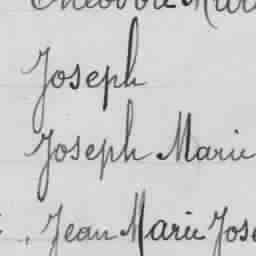 Joseph
Joseph Marie
, Jean Marie Jose